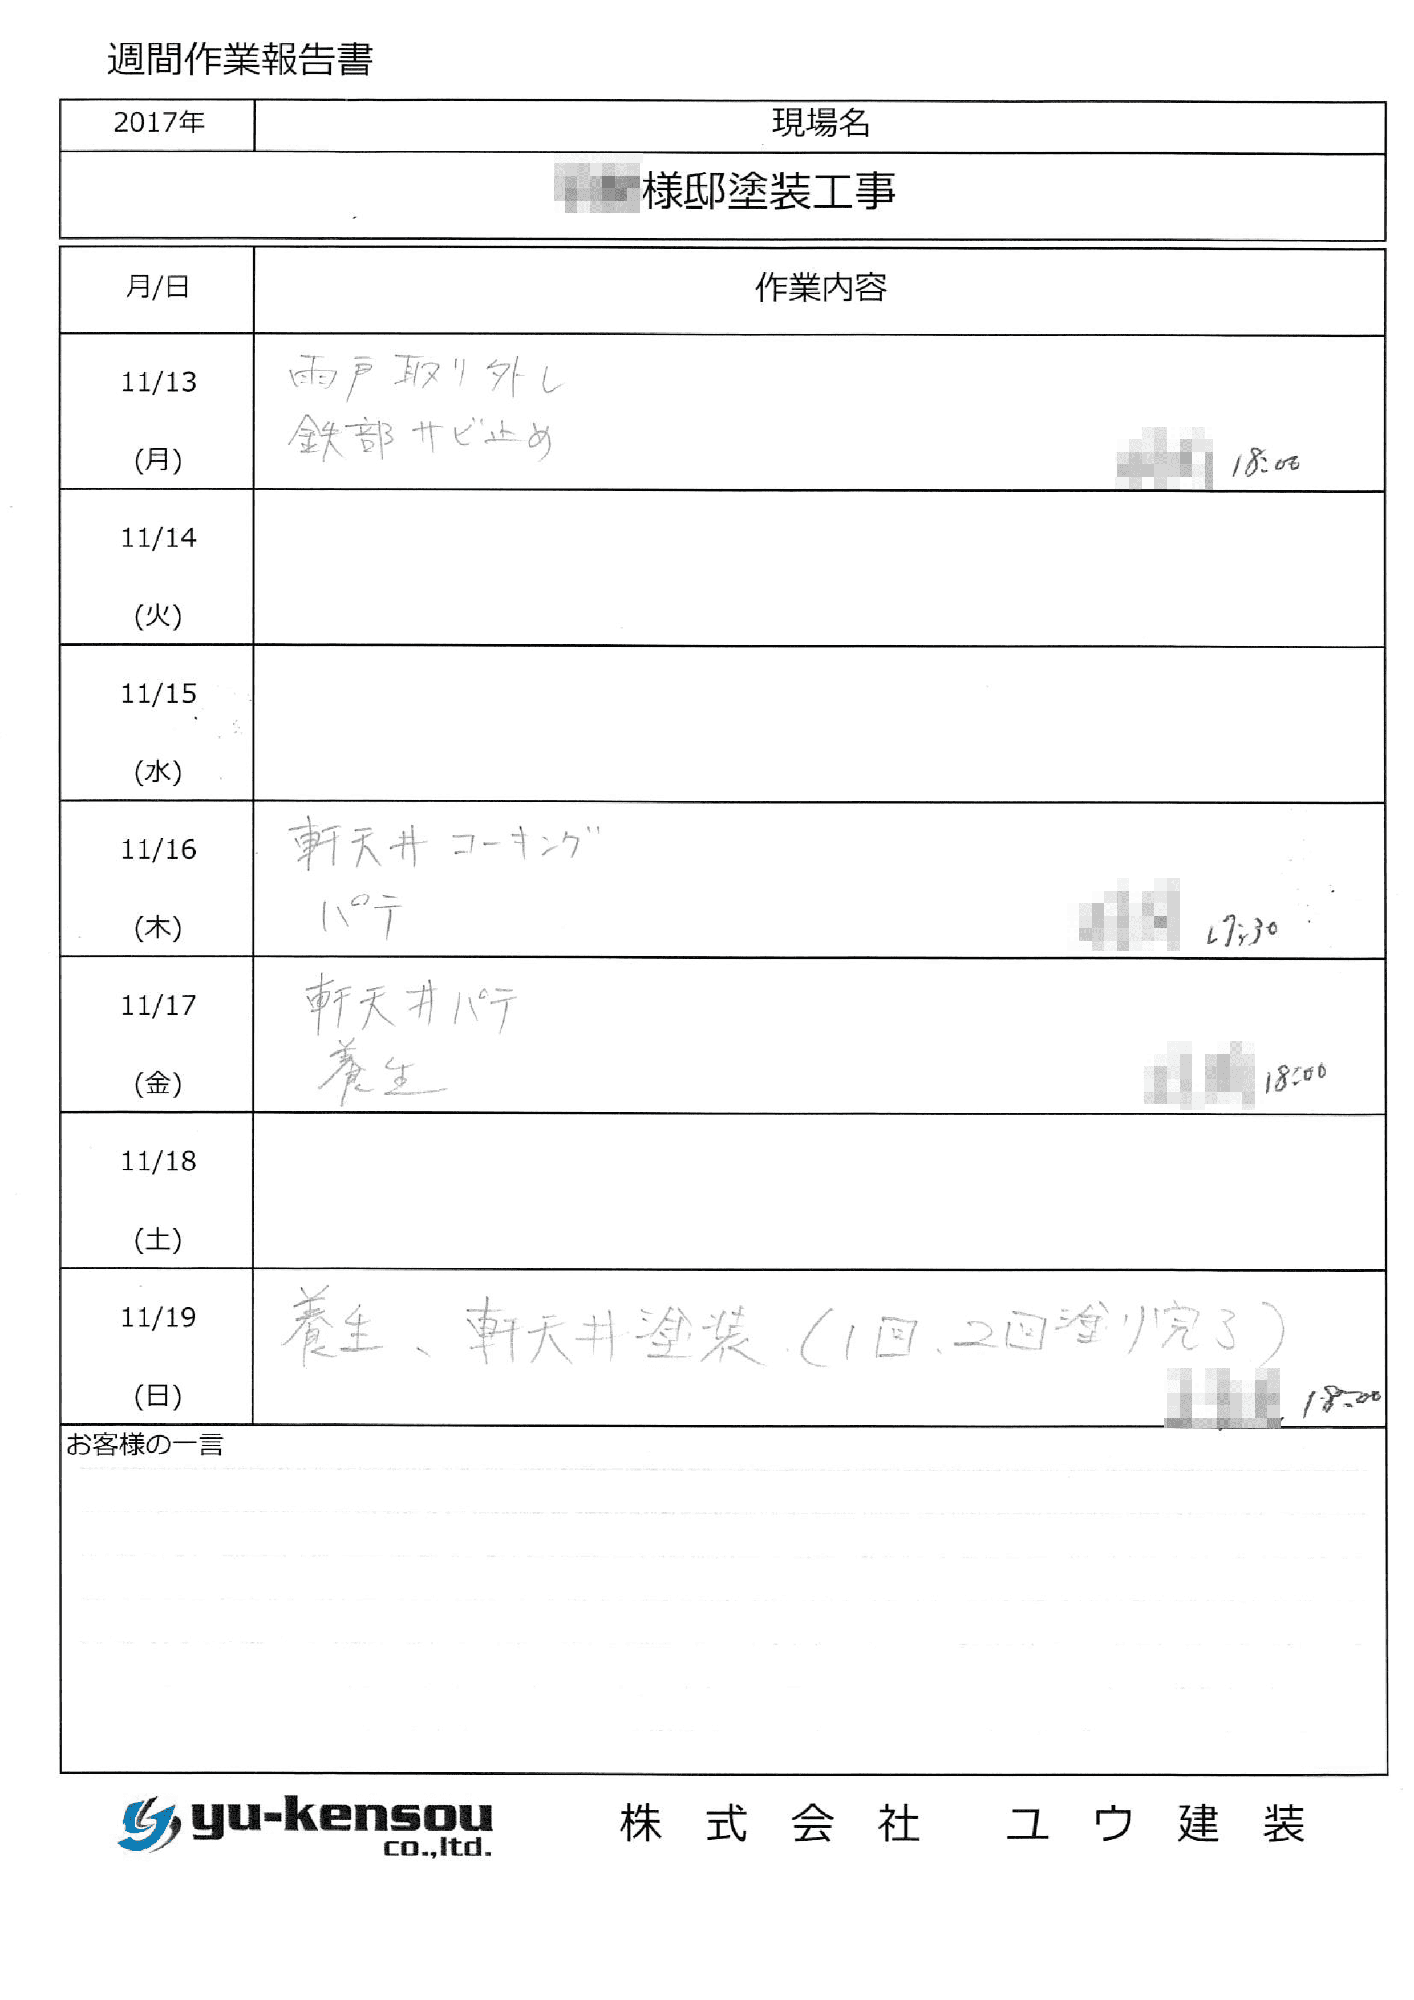 週間作業報告書
2017年 現場名
様邸塗装工事
月/日 作業内容
11/13
(月)
雨戸取り外し
鉄部サビ止め
18:00
11/14
(火)
11/15
(水)
11/16
(木)
軒天井コーキング
パテ
17:30
11/17
(金)
軒天井パテ
養生
18:00
11/18
(土)
11/19
(日)
養生、軒天井塗装.(1回、2回塗り完了)
18:00
お客様の一言
yu-kensou
co.,ltd.
株式会社 ユウ建装